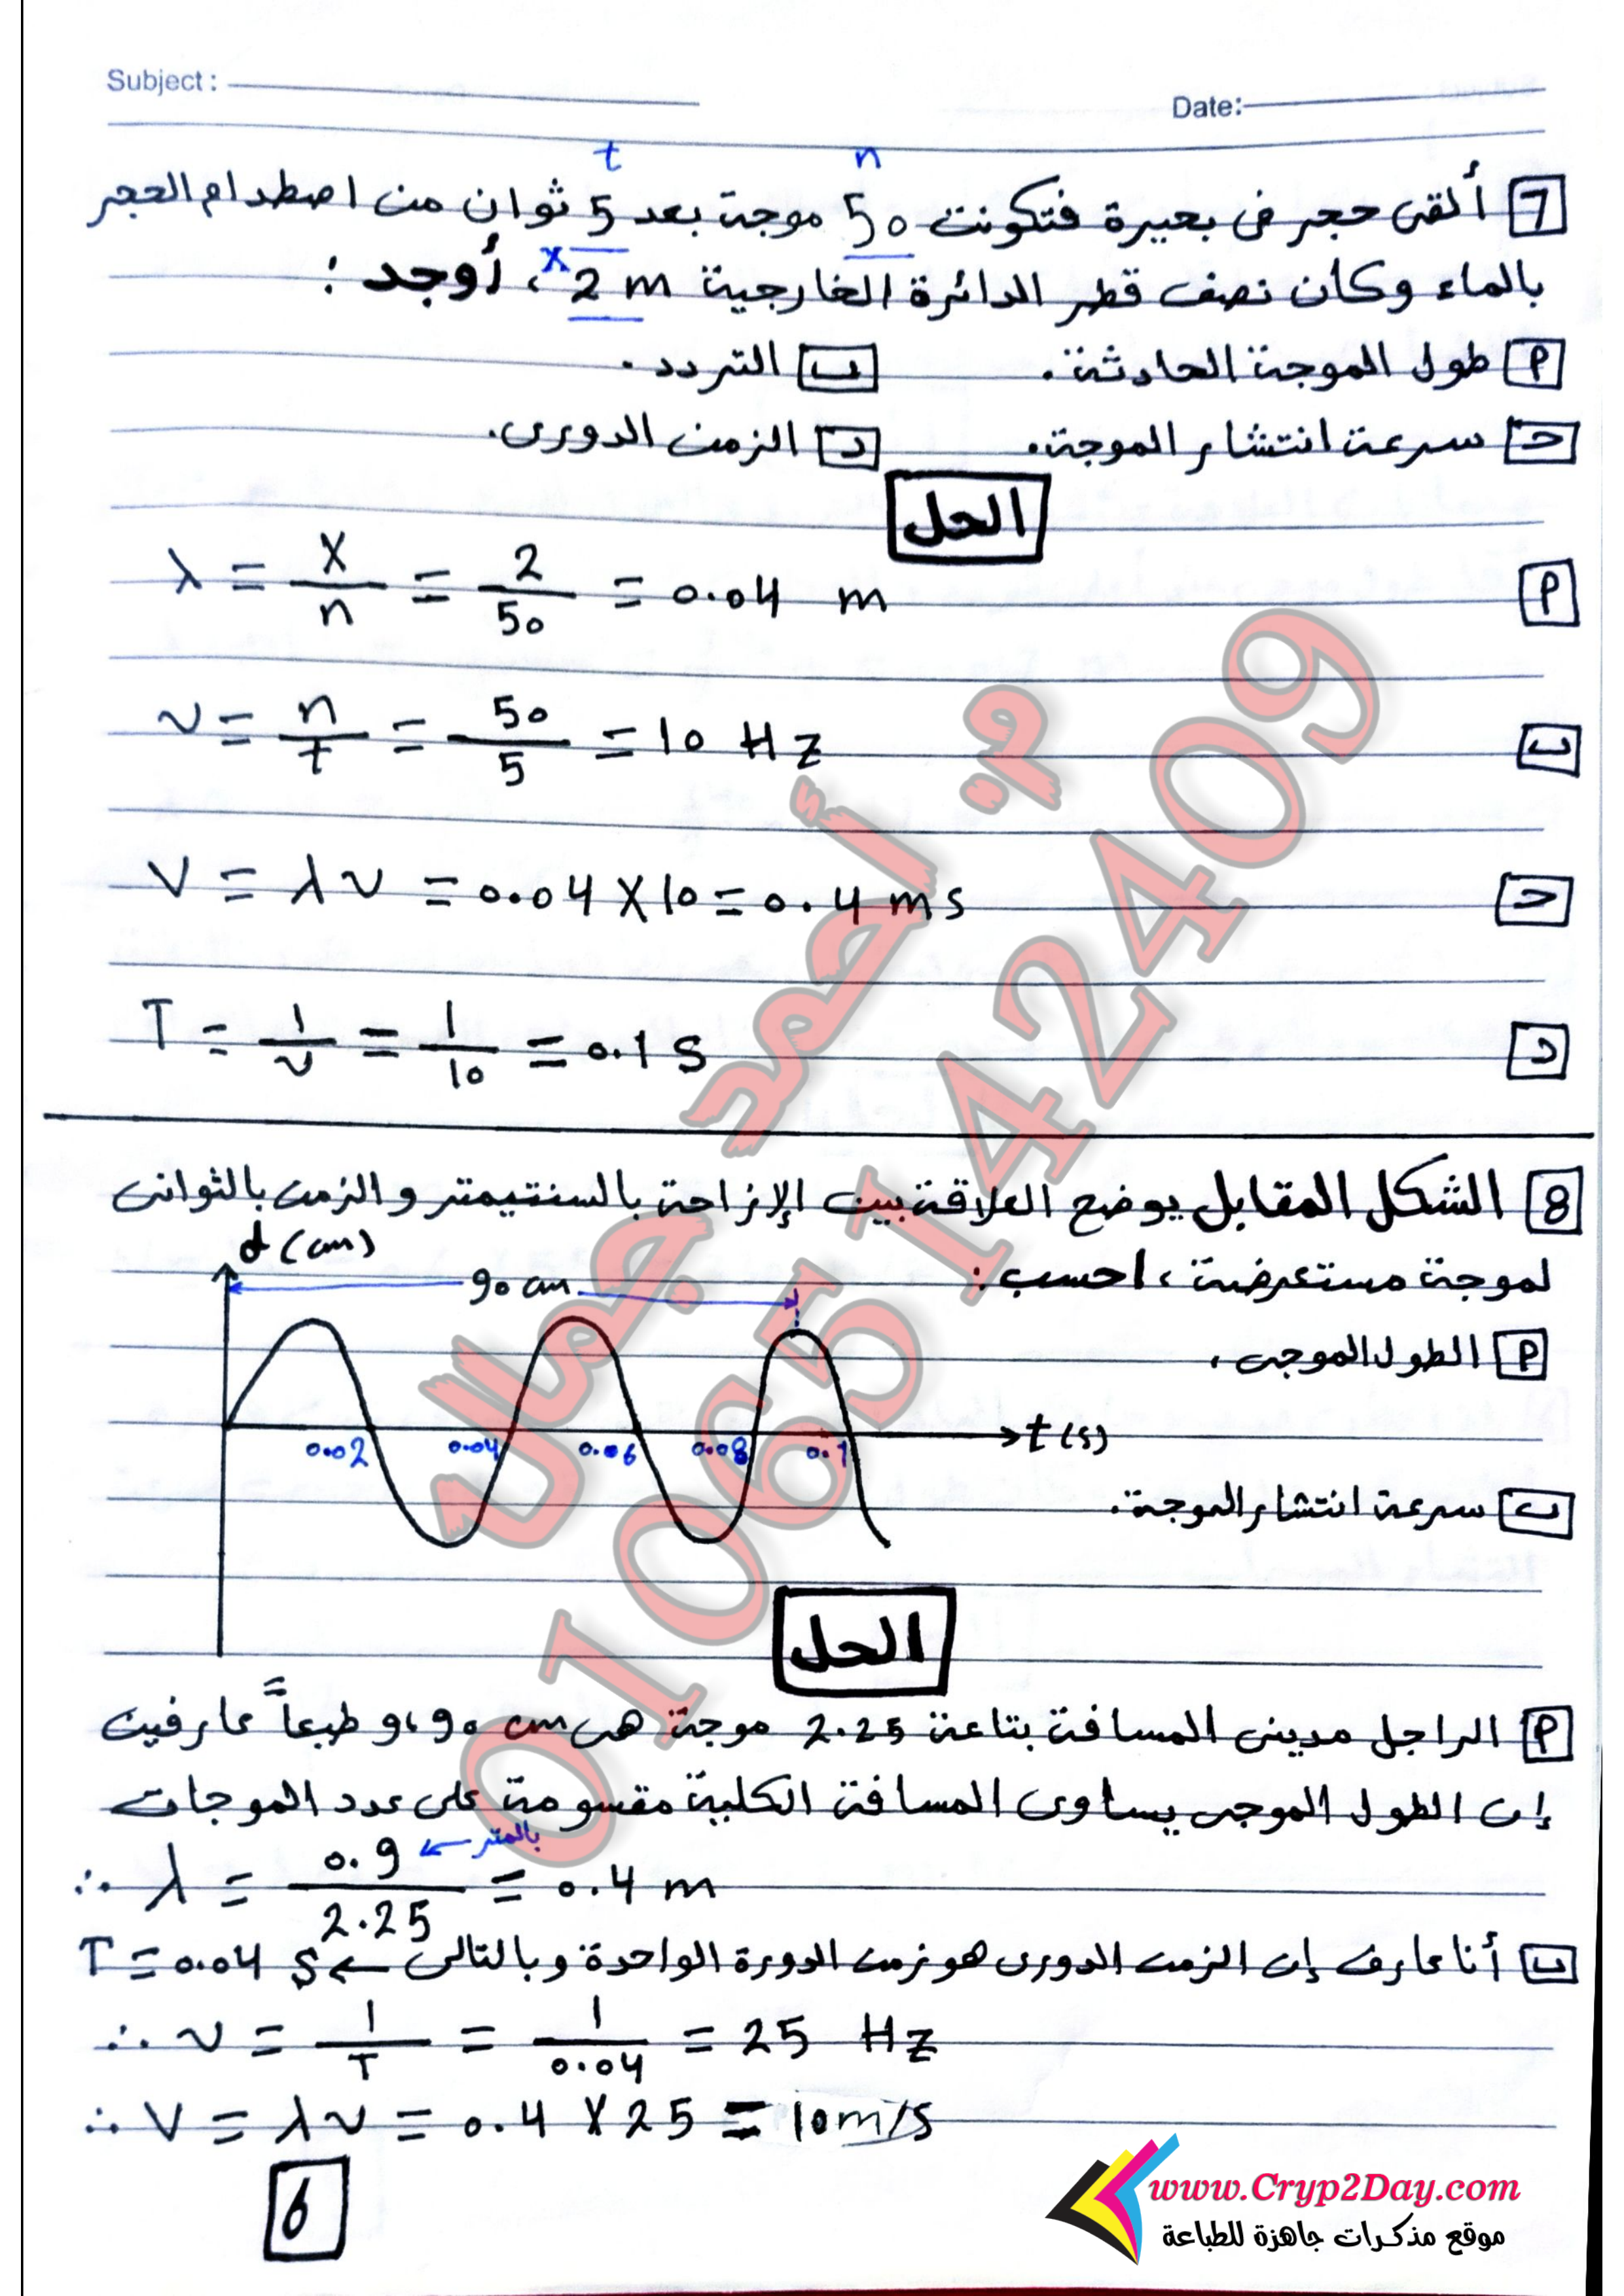 Subject :
Date:
t n
7 ألقى حجر فى بحيرة فتكونت 50 موجة بعد 5 ثوان من اصطدام الحجر
بالماء وكان نصف قطر الدائرة الخارجية 2 m ، أوجد :
x
P طول الموجة الحادثة . ب التردد .
حـ سرعة انتشار الموجة. د الزمن الدورى.
الحل
P λ = x/n = 2/50 = 0.04 m
ب ν = n/t = 50/5 = 10 Hz
حـ V = λν = 0.04 X 10 = 0.4 ms
د T = 1/ν = 1/10 = 0.1 s
8 الشكل المقابل يوضح العلاقة بين الإزاحة بالسنتيمتر والزمن بالثوانى
لموجة مستعرضة ، احسب :
d (cm)
90 cm
P الطول الموجى .
0.02 0.04 0.06 0.08 0.1 t (s)
ب سرعة انتشار الموجة.
الحل
P الراجل مدينى المسافة بتاعة 2.25 موجة هى 90 cm ، و طبعاً عارفين
إن الطول الموجى يساوى المسافة الكلية مقسومة على عدد الموجات
∴ λ = 0.9/2.25 = 0.4 m
بالمتر
ب أنا عارف إن الزمن الدورى هو زمن الدورة الواحدة وبالتالى ← T = 0.04 s
∴ ν = 1/T = 1/0.04 = 25 Hz
∴ V = λν = 0.4 X 25 = 10 m/s
6
م. أحمد جمال
01065142409
www.Cryp2Day.com
موقع مذكرات جاهزة للطباعة